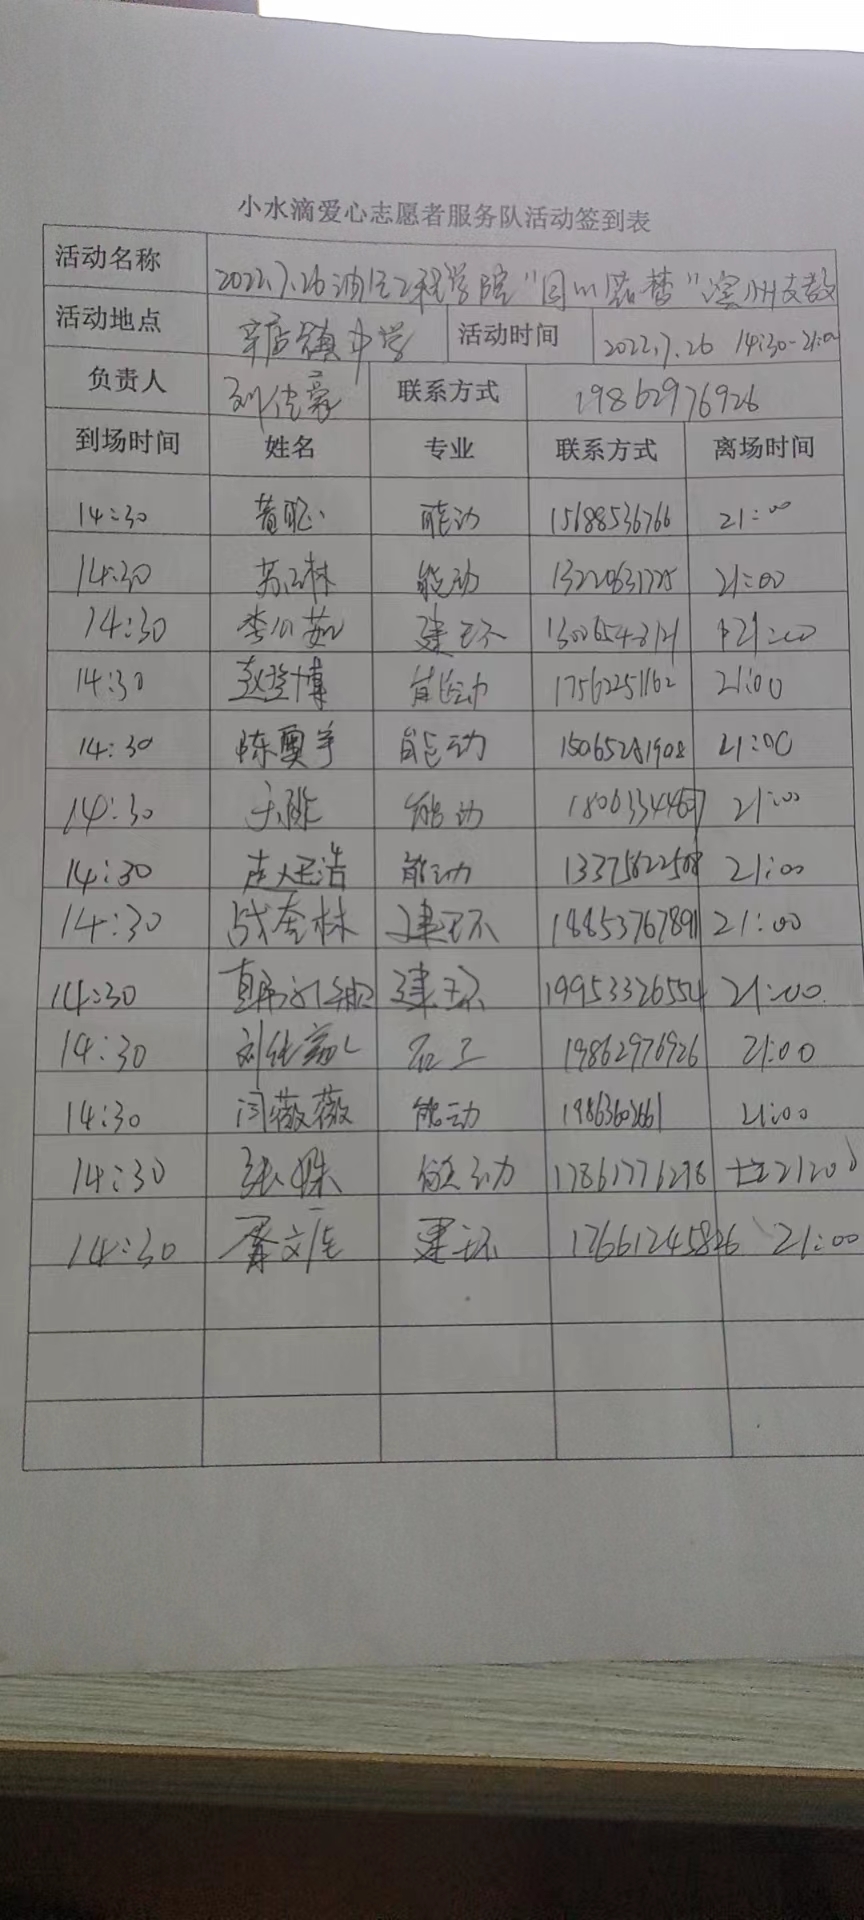 小水滴爱心志愿者服务队活动签到表
活动名称 2022.7.26 工程学院 滨州支教
活动地点 辛店镇中学 活动时间 2022.7.26 14:30-21:00
负责人 刘佳豪 联系方式 19862976926
到场时间 姓名 专业 联系方式 离场时间
14:30 黄聪 能动 15688536766 21:00
14:30 能动 21:00
14:30 建环 21:00
14:30 赵登博 能动 17562251162 21:00
14:30 陈奥宇 能动 15065281908 21:00
14:30 能动 21:00
14:30 能动 21:00
14:30 战奎林 建环 18853767891 21:00
14:30 建环 19953326554 21:00
14:30 石工 19862976926 21:00
14:30 闫薇薇 能动 19863602661 21:00
14:30 张姝 能动 17861776276 21:00
14:30 建环 17661245826 21:00